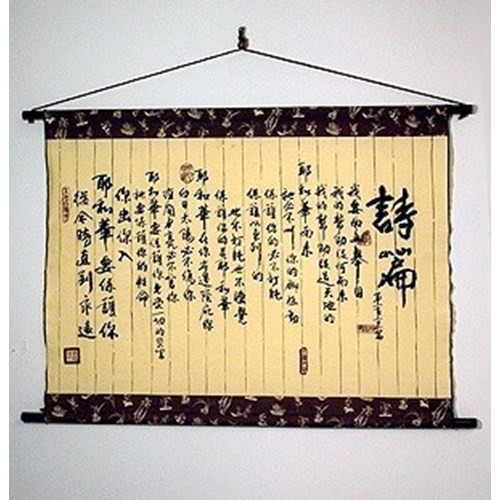 詩篇
我要向山舉目
我的幫助從何而來
我的幫助從造天地的
耶和華而來
祂必不叫你的腳搖動
保護你的必不打盹
保護以色列的
也不打盹也不睡覺
保護你的是耶和華
耶和華在你右邊蔭庇你
白日太陽必不傷你
夜間月亮必不害你
耶和華要保護你免受一切的災害
祂要保護你的性命
你出你入
耶和華要保護你
從今時直到永遠